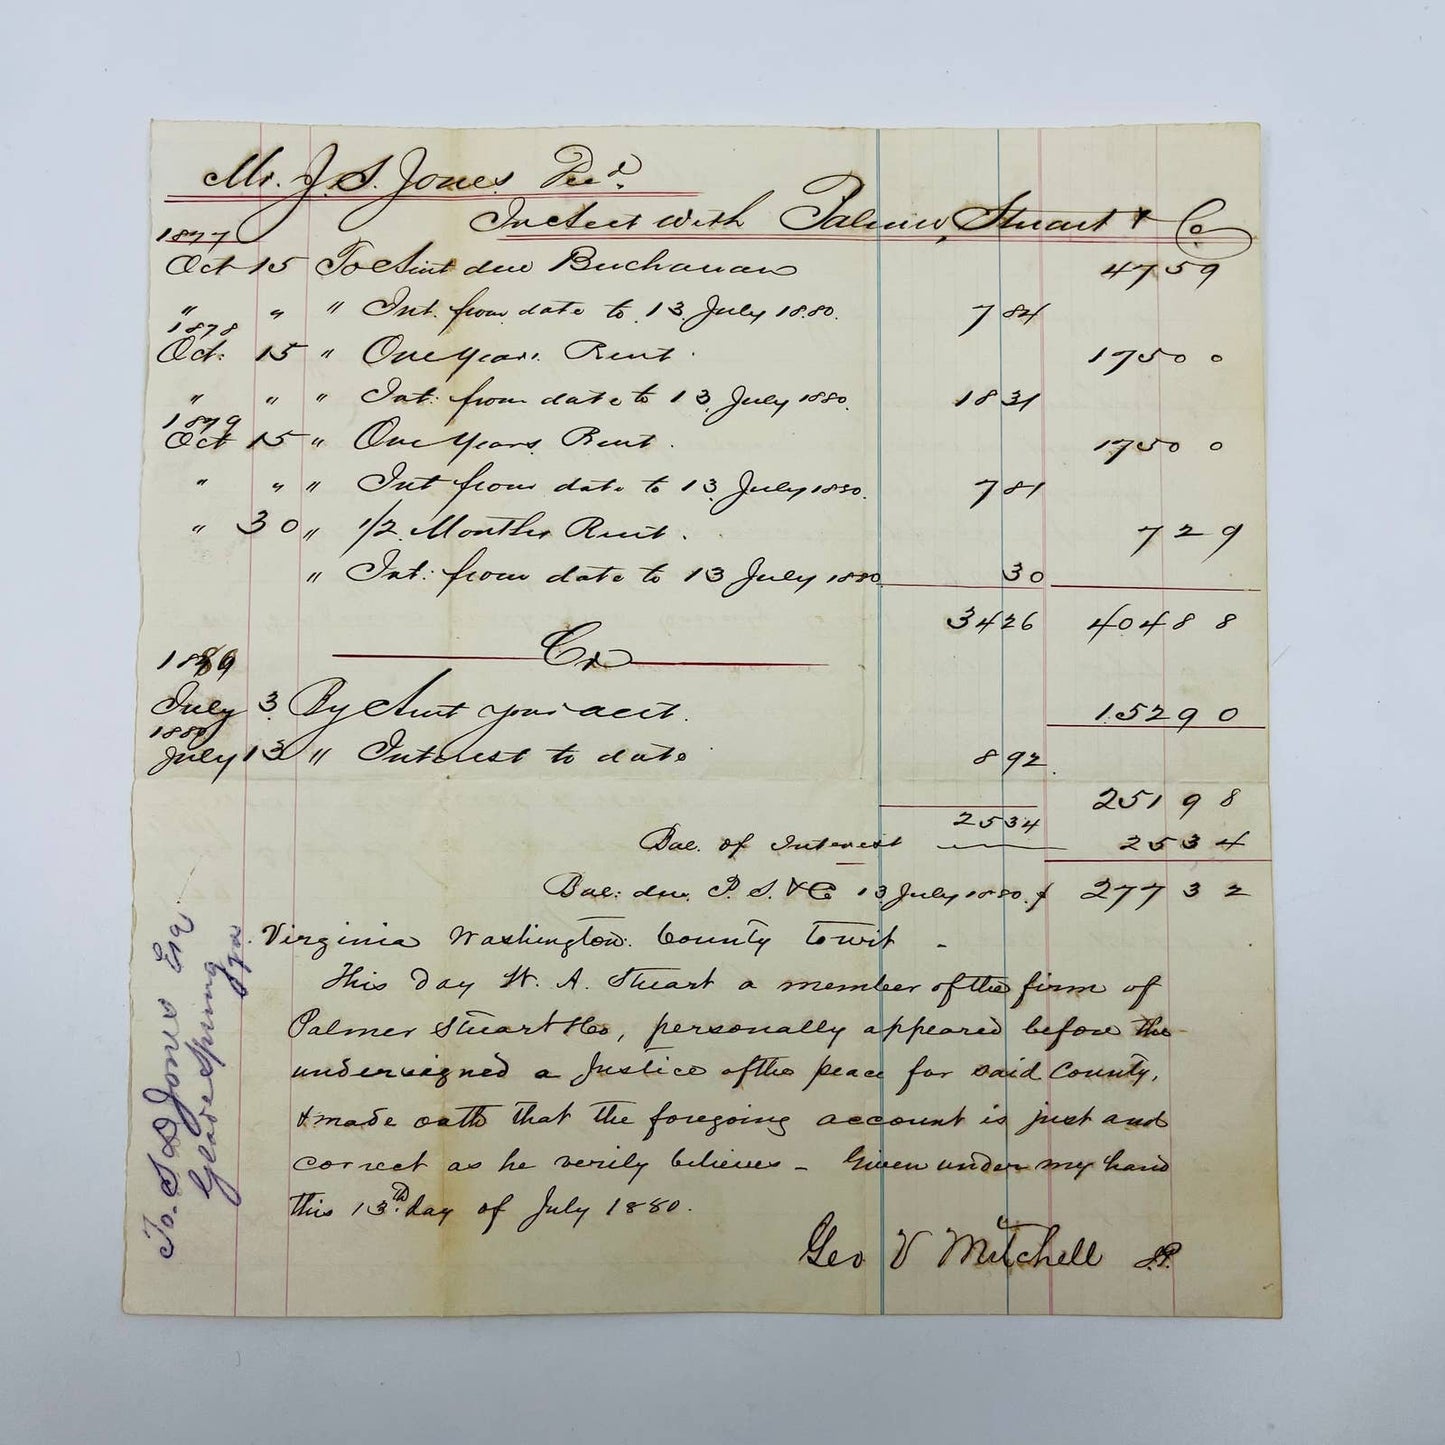 Mr. J. S. Jones Decd.
In Acct with Palmer, Stuart & Co
1877
Oct 15 To Amt due Buchanan 47 59
" " " Int. from date to 13 July 1880. 7 84
1878
Oct. 15 " One Years Rent. 175 00
" " " Int. from date to 13 July 1880. 18 31
1879
Oct 15 " One Years Rent. 175 00
" " " Int from date to 13 July 1880. 7 81
" 30 " 1/2 Months Rent. 7 29
" Int. from date to 13 July 1880 30
34 26 404 88
Cr
1879
July 3 By Amt your acct. 152 90
1880
July 13 " Interest to date 8 92
251 98
25 34
Bal. of Interest 25 34
Bal. due P. S. & Co 13 July 1880. $ 277 32
Virginia Washington County towit -
This day W. A. Stuart a member of the firm of
Palmer Stuart & Co, personally appeared before the
undersigned a Justice of the peace for said County,
& made oath that the foregoing account is just and
correct as he verily believes - Given under my hand
this 13th day of July 1880.
Geo V Mitchell J.P.
To. S D Jones Esq
Glade Spring
Va.